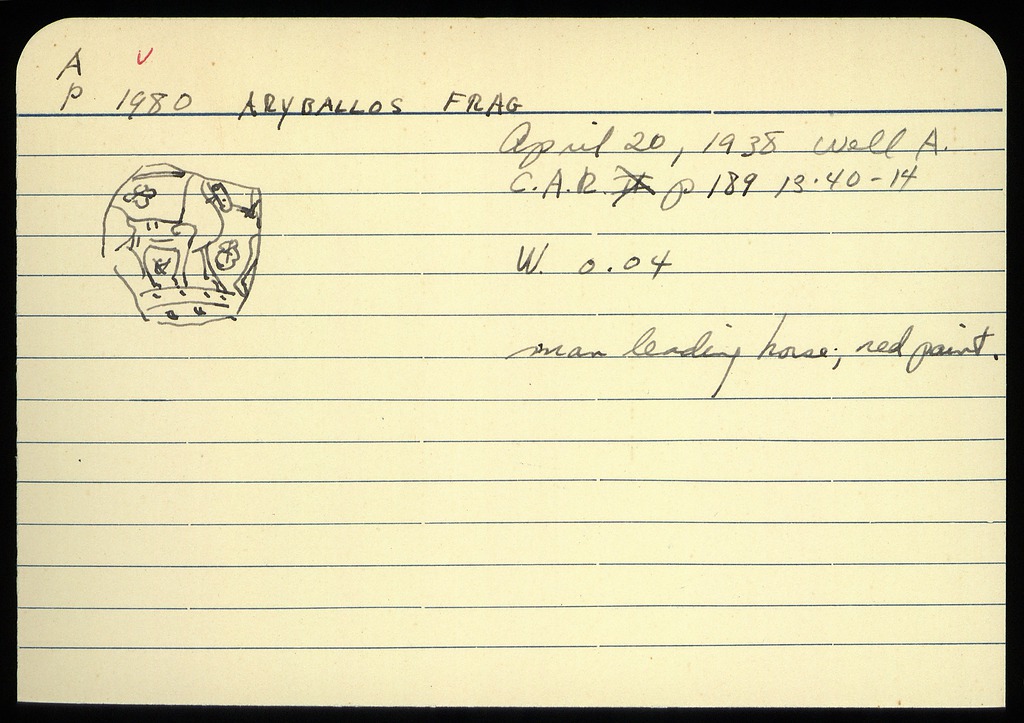 A
P 1980 ARYBALLOS FRAG
April 20, 1938 Well A.
C.A.R. p 189 13.40-14
W. 0.04
man leading horse; red paint.